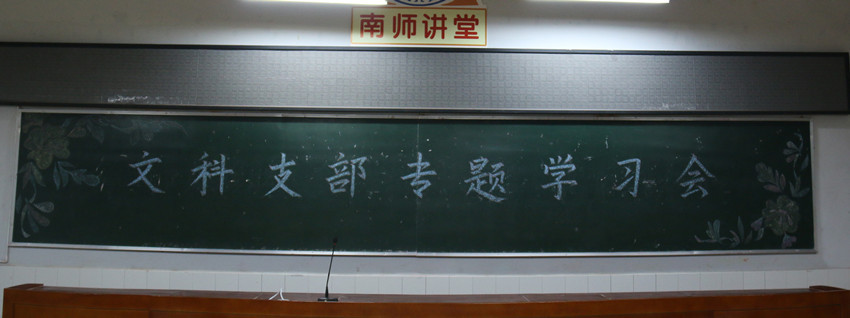 南师讲堂
文科支部专题学习会